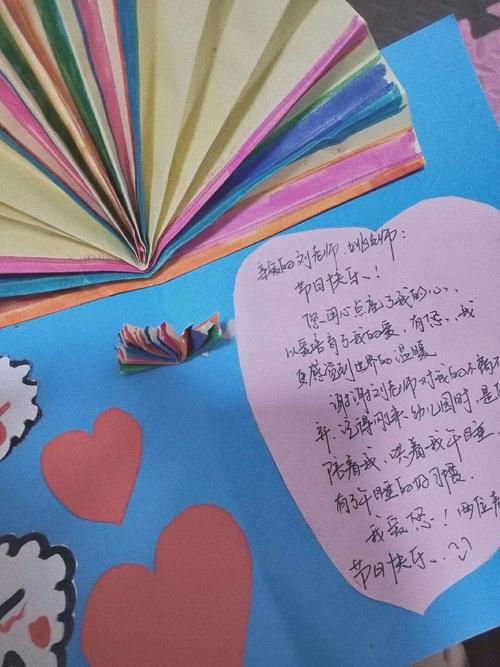 亲爱的刘老师、姚老师：
节日快乐！
您用心点亮了我的心，
以爱培育了我的爱，有您，我
感觉到世界的温暖
谢谢刘老师对我的不离不
弃，记得刚来幼儿园时，是
陪着我，哄着我午睡，
有了午睡的好习惯
我爱您！两位老
节日快乐